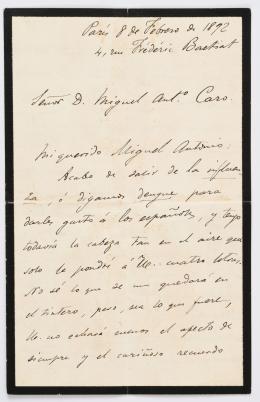 París 8 de Febrero de 1892
4, rue Frédéric Bastiat
Señor D. Miguel Antº Caro.
Mi querido Miguel Antonio:
Acabo de salir de la influen
za, ó digamos dengue para
darles gusto á los españoles, y tengo
todavía la cabeza tan en el aire que
solo le pondré á U. cuatro letras.
No sé lo que se me quedará en
el tintero, pero, sea lo que fuere,
U. no echará menos el afecto de
siempre y el cariñoso recuerdo